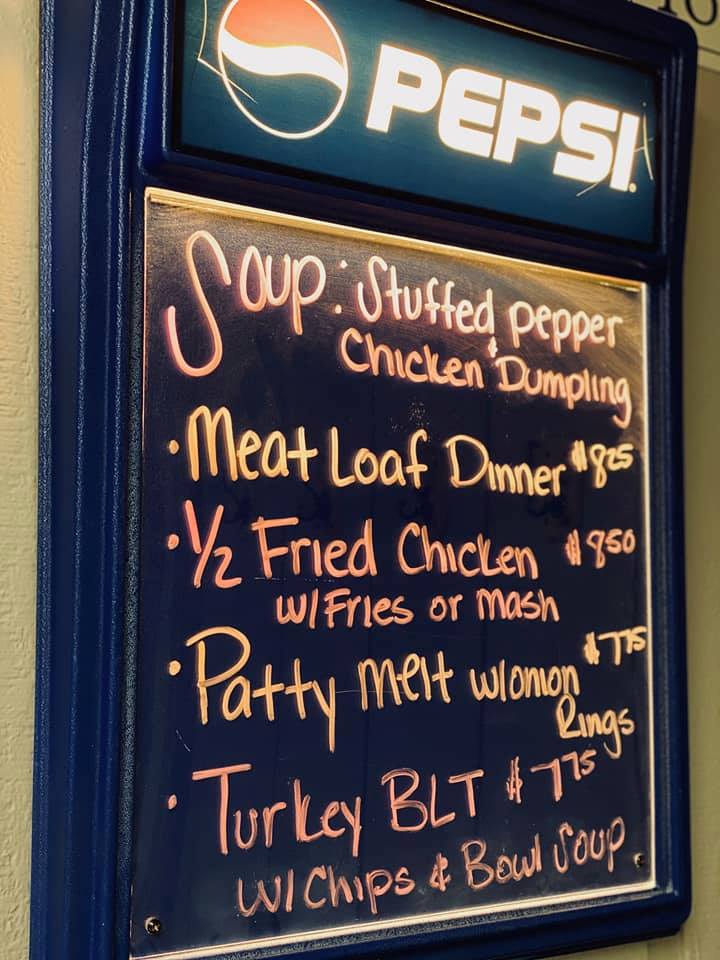 PEPSI
Soup: Stuffed Pepper
& Chicken Dumpling
• Meat Loaf Dinner $825
• 1/2 Fried Chicken $850
w/Fries or Mash
• Patty Melt w/onion $775
Rings
• Turkey BLT $775
w/Chips & Bowl Soup